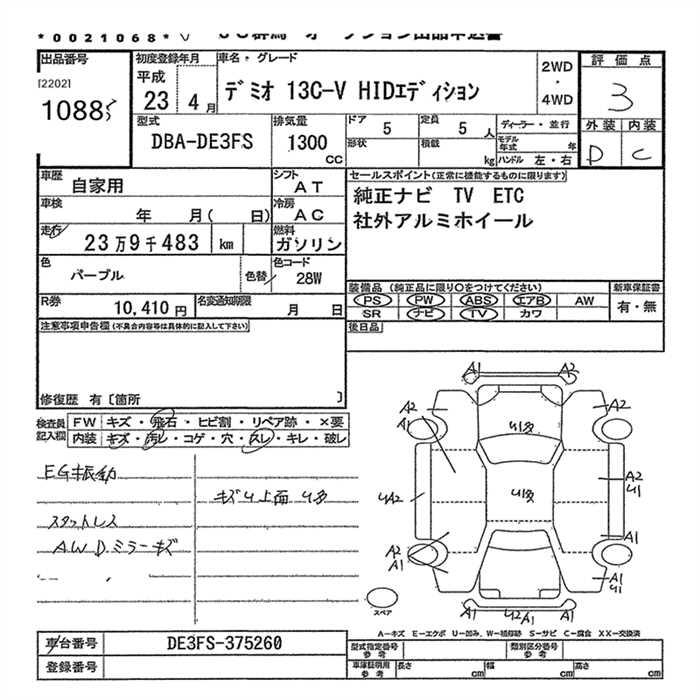 *0021068*
出品番号
[2202]
1088
初度登録年月
平成
23 4月
車名・グレード
デミオ 13C-V HIDエディション
2WD
・
4WD
評価点
3
外装 内装
D C
型式
DBA-DE3FS
排気量
1300
CC
ドア 5
定員 5 人
形状
積載 kg
ディーラー・並行
モデル年式 年
ハンドル 左・右
車歴 自家用
シフト AT
車検 年 月( 日)
冷房 AC
走行 23万9千483 km
燃料 ガソリン
色 パープル
色替
色コード 28W
R券 10,410円
名変通知期限 月 日
セールスポイント(正常に機能するものに限ります)
純正ナビ TV ETC
社外アルミホイール
装備品 (純正品に限り○をつけてください)
新車保証書
PS PW ABS エアB AW
SR ナビ TV カワ
有・無
後日品
注意事項申告欄(不具合内容等は具体的に記入して下さい)
修復歴 有〔箇所 〕
検査員記入欄
FW キズ・飛石・ヒビ割・リペア跡・×要
内装 キズ・汚レ・コゲ・穴・スレ・キレ・破レ
EG振動
キズU上面 U多
スタットレス
AW D.ミラーキズ
A1 A2
A2 A1 U多 A2
UA2 U多 A2 U1
A2 A1 A1
A1 U1
A1 U2A1 A1
スペア
A―キズ E―エクボ U―凹み、W―補修跡 S―サビ C―腐食 XX―交換済
車台番号 DE3FS-375260
登録番号
型式指定番号 参考
類別区分番号 参考
車庫証明用 参考 長さ cm 幅 cm 高さ cm